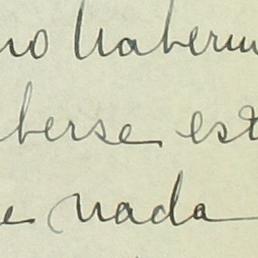 no haberm
berse est
e nada